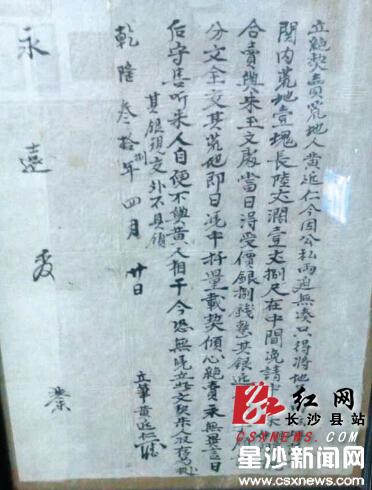 立絶契賣荒地人黄近仁今因公私兩迫無湊只得將地
関内荒地壹塊長陸丈濶壹丈捌尺在中間俛請
合賣與朱玉文處當日得受價銀捌錢整其銀近
分文其荒地即日凭中扦量載契傾心絶賣永無異言日
后守售听朱人自便不與黄人相干今恐無凭立此文契朱收
其銀現交外不具領
乾隆叁拾捌年四月廿日
立筆黄近仁
永遠
業
红网
长沙县站
CSXNEWS.COM
星沙新闻网
www.csxnews.com